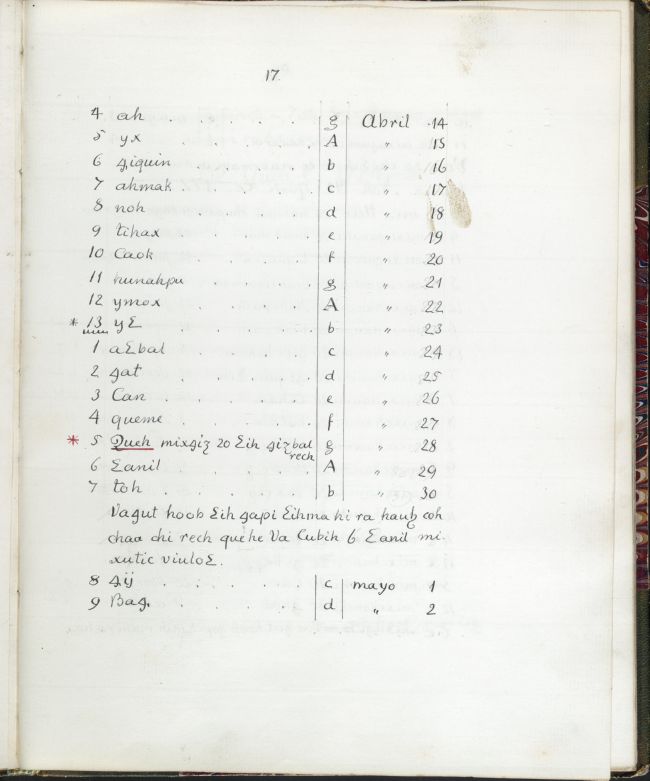 17.
4 ah . . . . g Abril 14
5 yx . . . . A " 15
6 ꜯiquin . . . b " 16
7 ahmak . . . . c " 17
8 noh . . . . d " 18
9 tihax . . . . e " 19
10 Caok . . . . f " 20
11 hunahpu . . . g " 21
12 ymox . . . . A " 22
* 13 yꜪ . . . . b " 23
1 aꜪbal . . . . c " 24
2 ꜭat . . . . d " 25
3 Can . . . . e " 26
4 queme . . . . f " 27
* 5 Queh mixꜭiz 20 Ꜫih ꜭizbal rech g " 28
6 Ꜫanil . . . . A " 29
7 toh . . . . b " 30
Vaꜭut hoob Ꜫih ꜭapi Ꜫihma hi ra haub coh
chaa chi rech quehe Va Cubih 6 Ꜫanil mi-
xutic viuloꜪ.
8 ꜭij . . . . c mayo 1
9 Baꜭ. . . . . d " 2